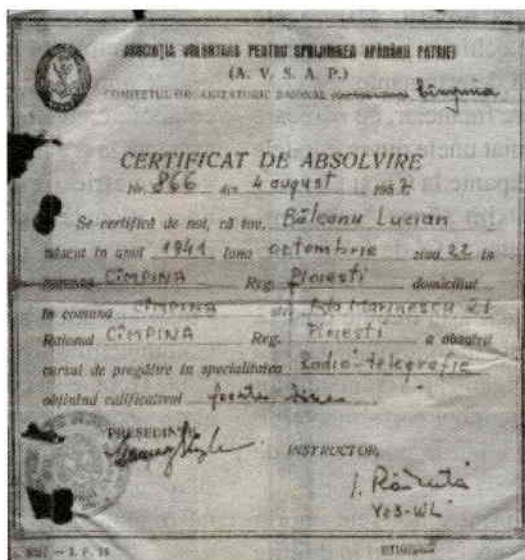 ASOCIAȚIA VOLUNTARĂ PENTRU SPRIJINIREA APĂRĂRII PATRIEI
(A. V. S. A. P.)
COMITETUL ORGANIZATORIC RAIONAL Cîmpina
CERTIFICAT DE ABSOLVIRE
Nr. 866 din 4 august 1957
Se certifică de noi, că tov. Bălcanu Lucian
născut în anul 1941 luna octombrie ziua 22 în
CÎMPINA Reg. Ploiești domiciliat
în comuna CÎMPINA str.
Raionul CÎMPINA Reg. Ploiești a absolvit
cursul de pregătire în specialitatea Radio-telegrafie
obținînd calificativul foarte bine
PREȘEDINTE,
INSTRUCTOR,